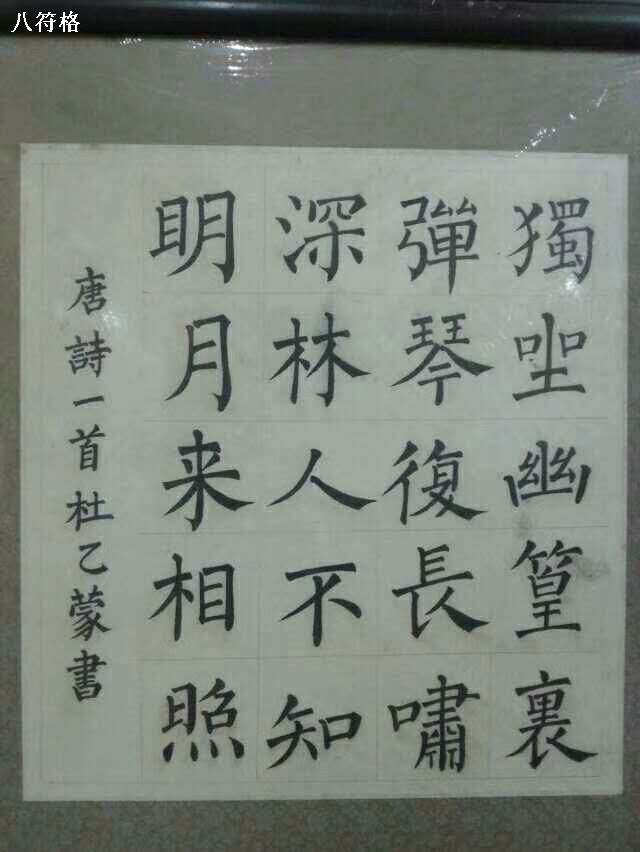 八符格
獨坐幽篁裏
彈琴復長嘯
深林人不知
明月来相照
唐詩一首杜乙蒙書